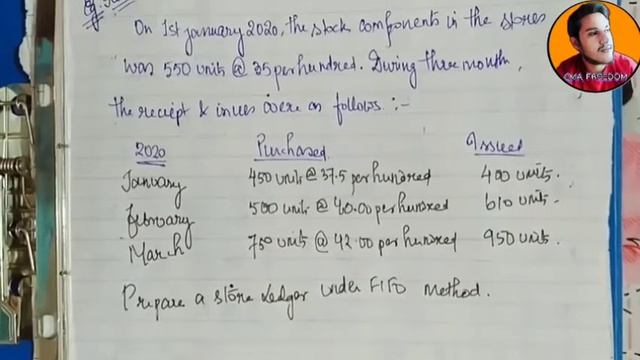 On 1st january 2020, the stock components in the stores
was 550 units @ 35 per hundred. During three month,
the receipt & issues were as follows :-
2020 Purchased Issued
January 450 units @ 37.5 per hundred 400 units.
February 500 units @ 40.00 per hundred 610 units.
March 750 units @ 42.00 per hundred 950 units.
Prepare a store Ledger under FIFO method.
CMA FREEDOM